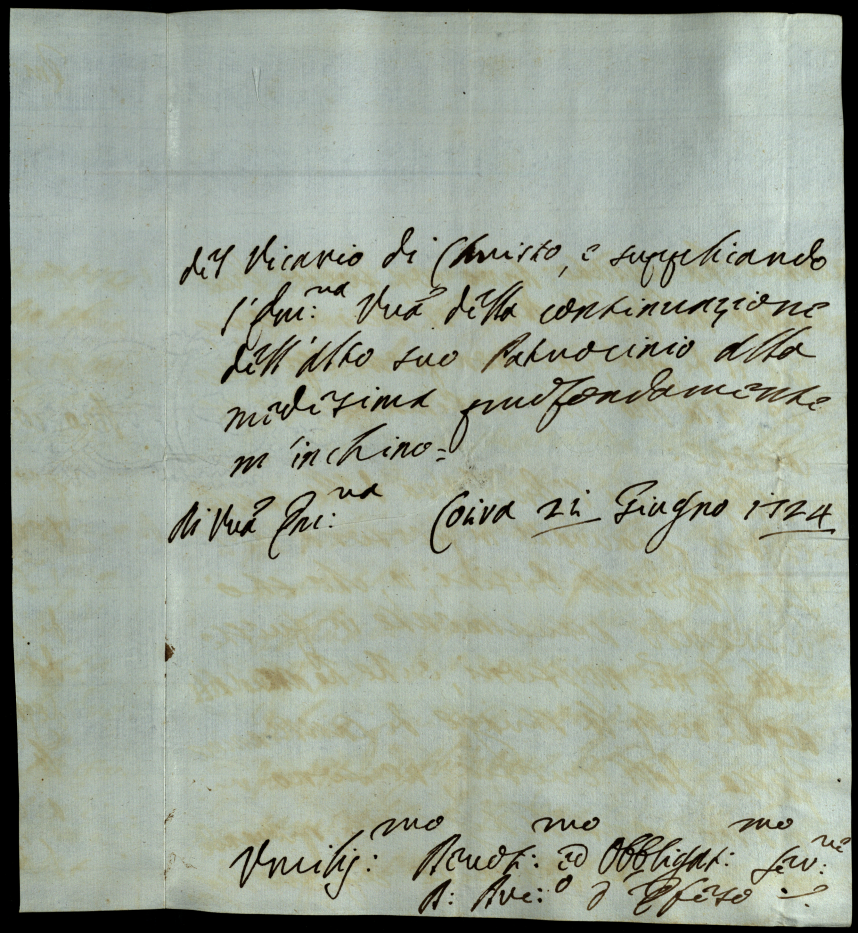 del Vicario di Christo, e supplicando
l'Em:na Vra della continuazione
dell'Alto suo Patrocinio alla
medesima profondamente
m'inchino=
di Vra Em:na Coira 21 Giugno 1724
Umilis:mo Devot:mo ed Obbligat:mo Ser:re
A: Arc:o d'Efeso